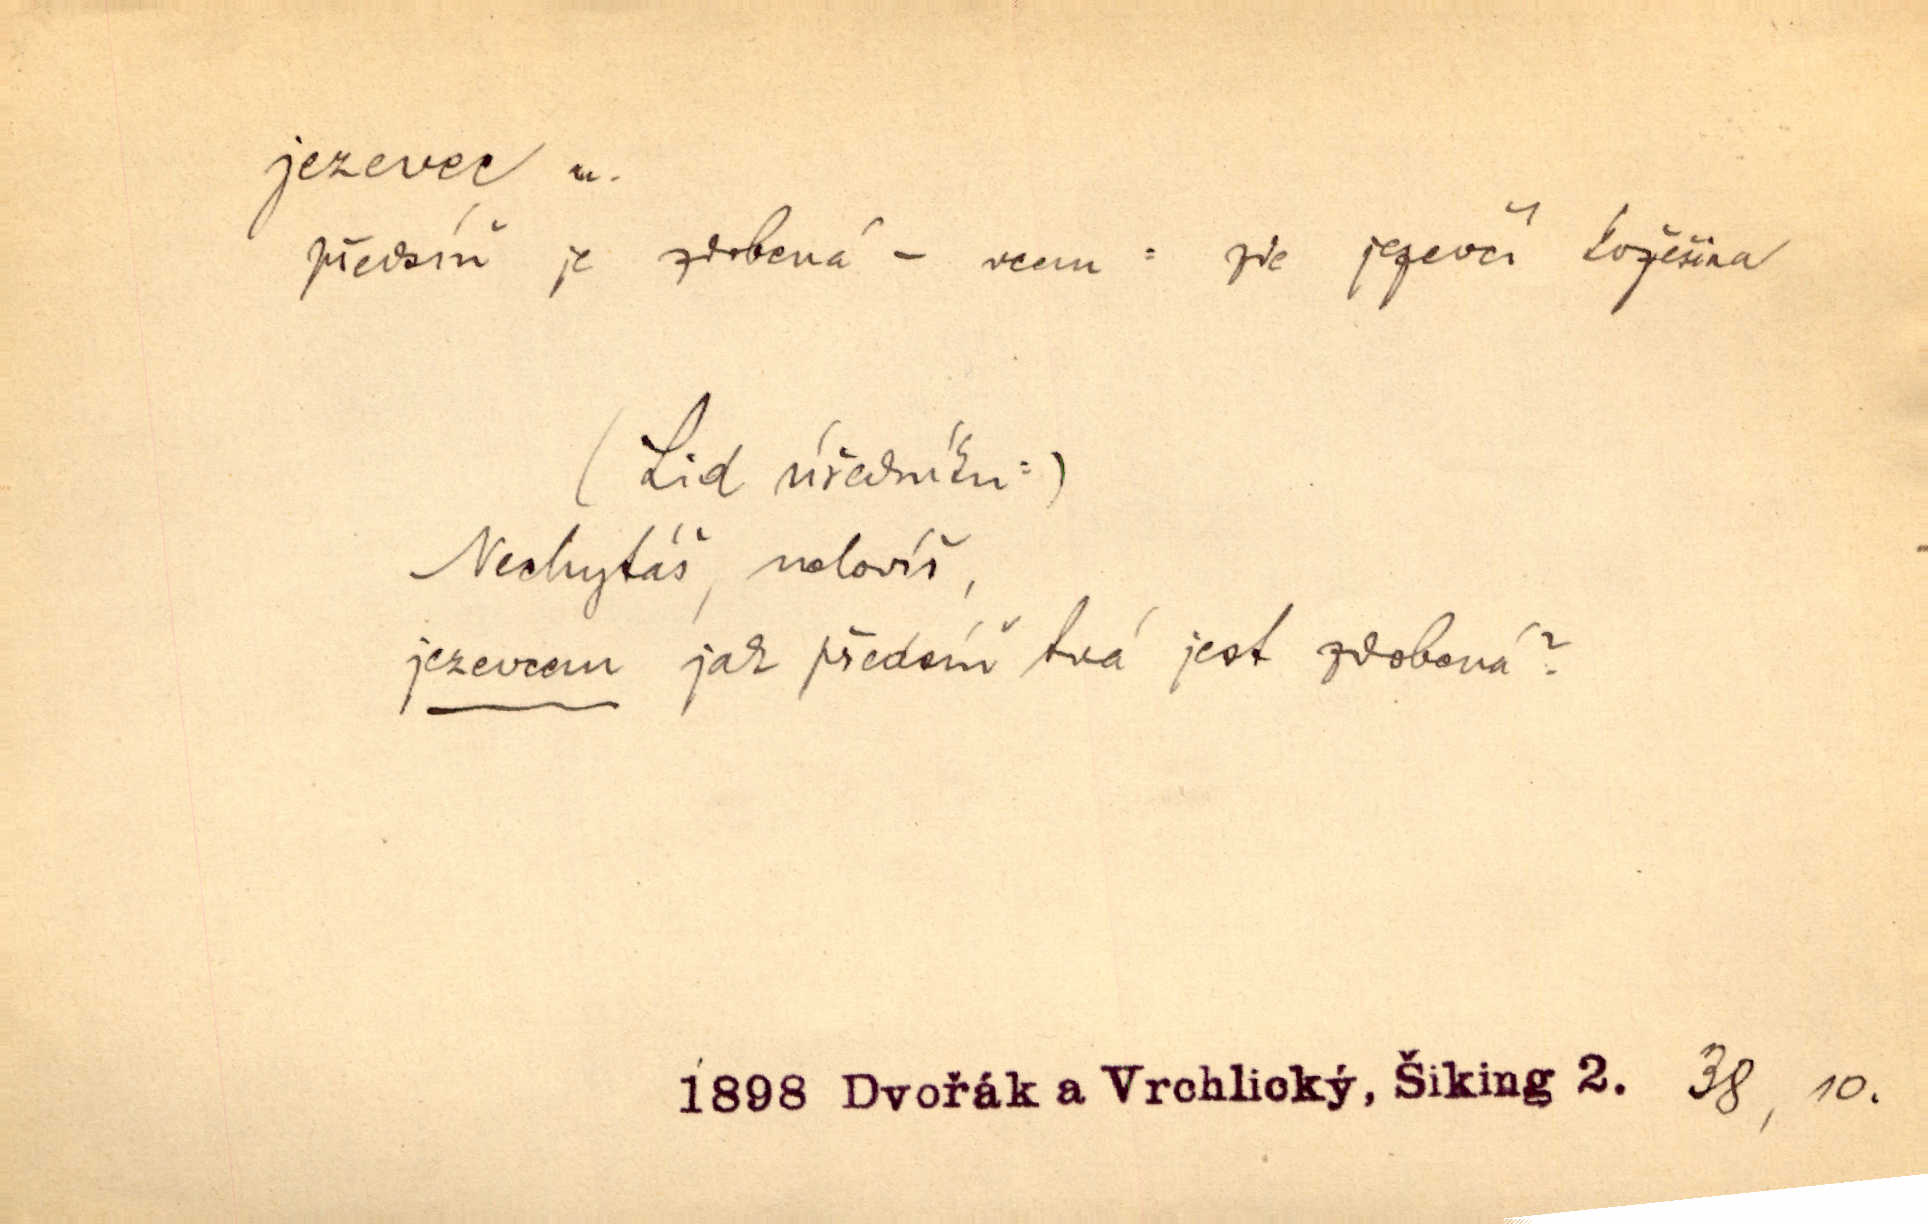 jezevec m.
předsíň je zdobená - vcem : zde jezevčí kožešina
(Lid úředníku:)
Nechytáš, nelovíš,
jezevcem jak předsíň tvá jest zdobená?
1898 Dvořák a Vrchlický, Šiking 2. 38, 10.